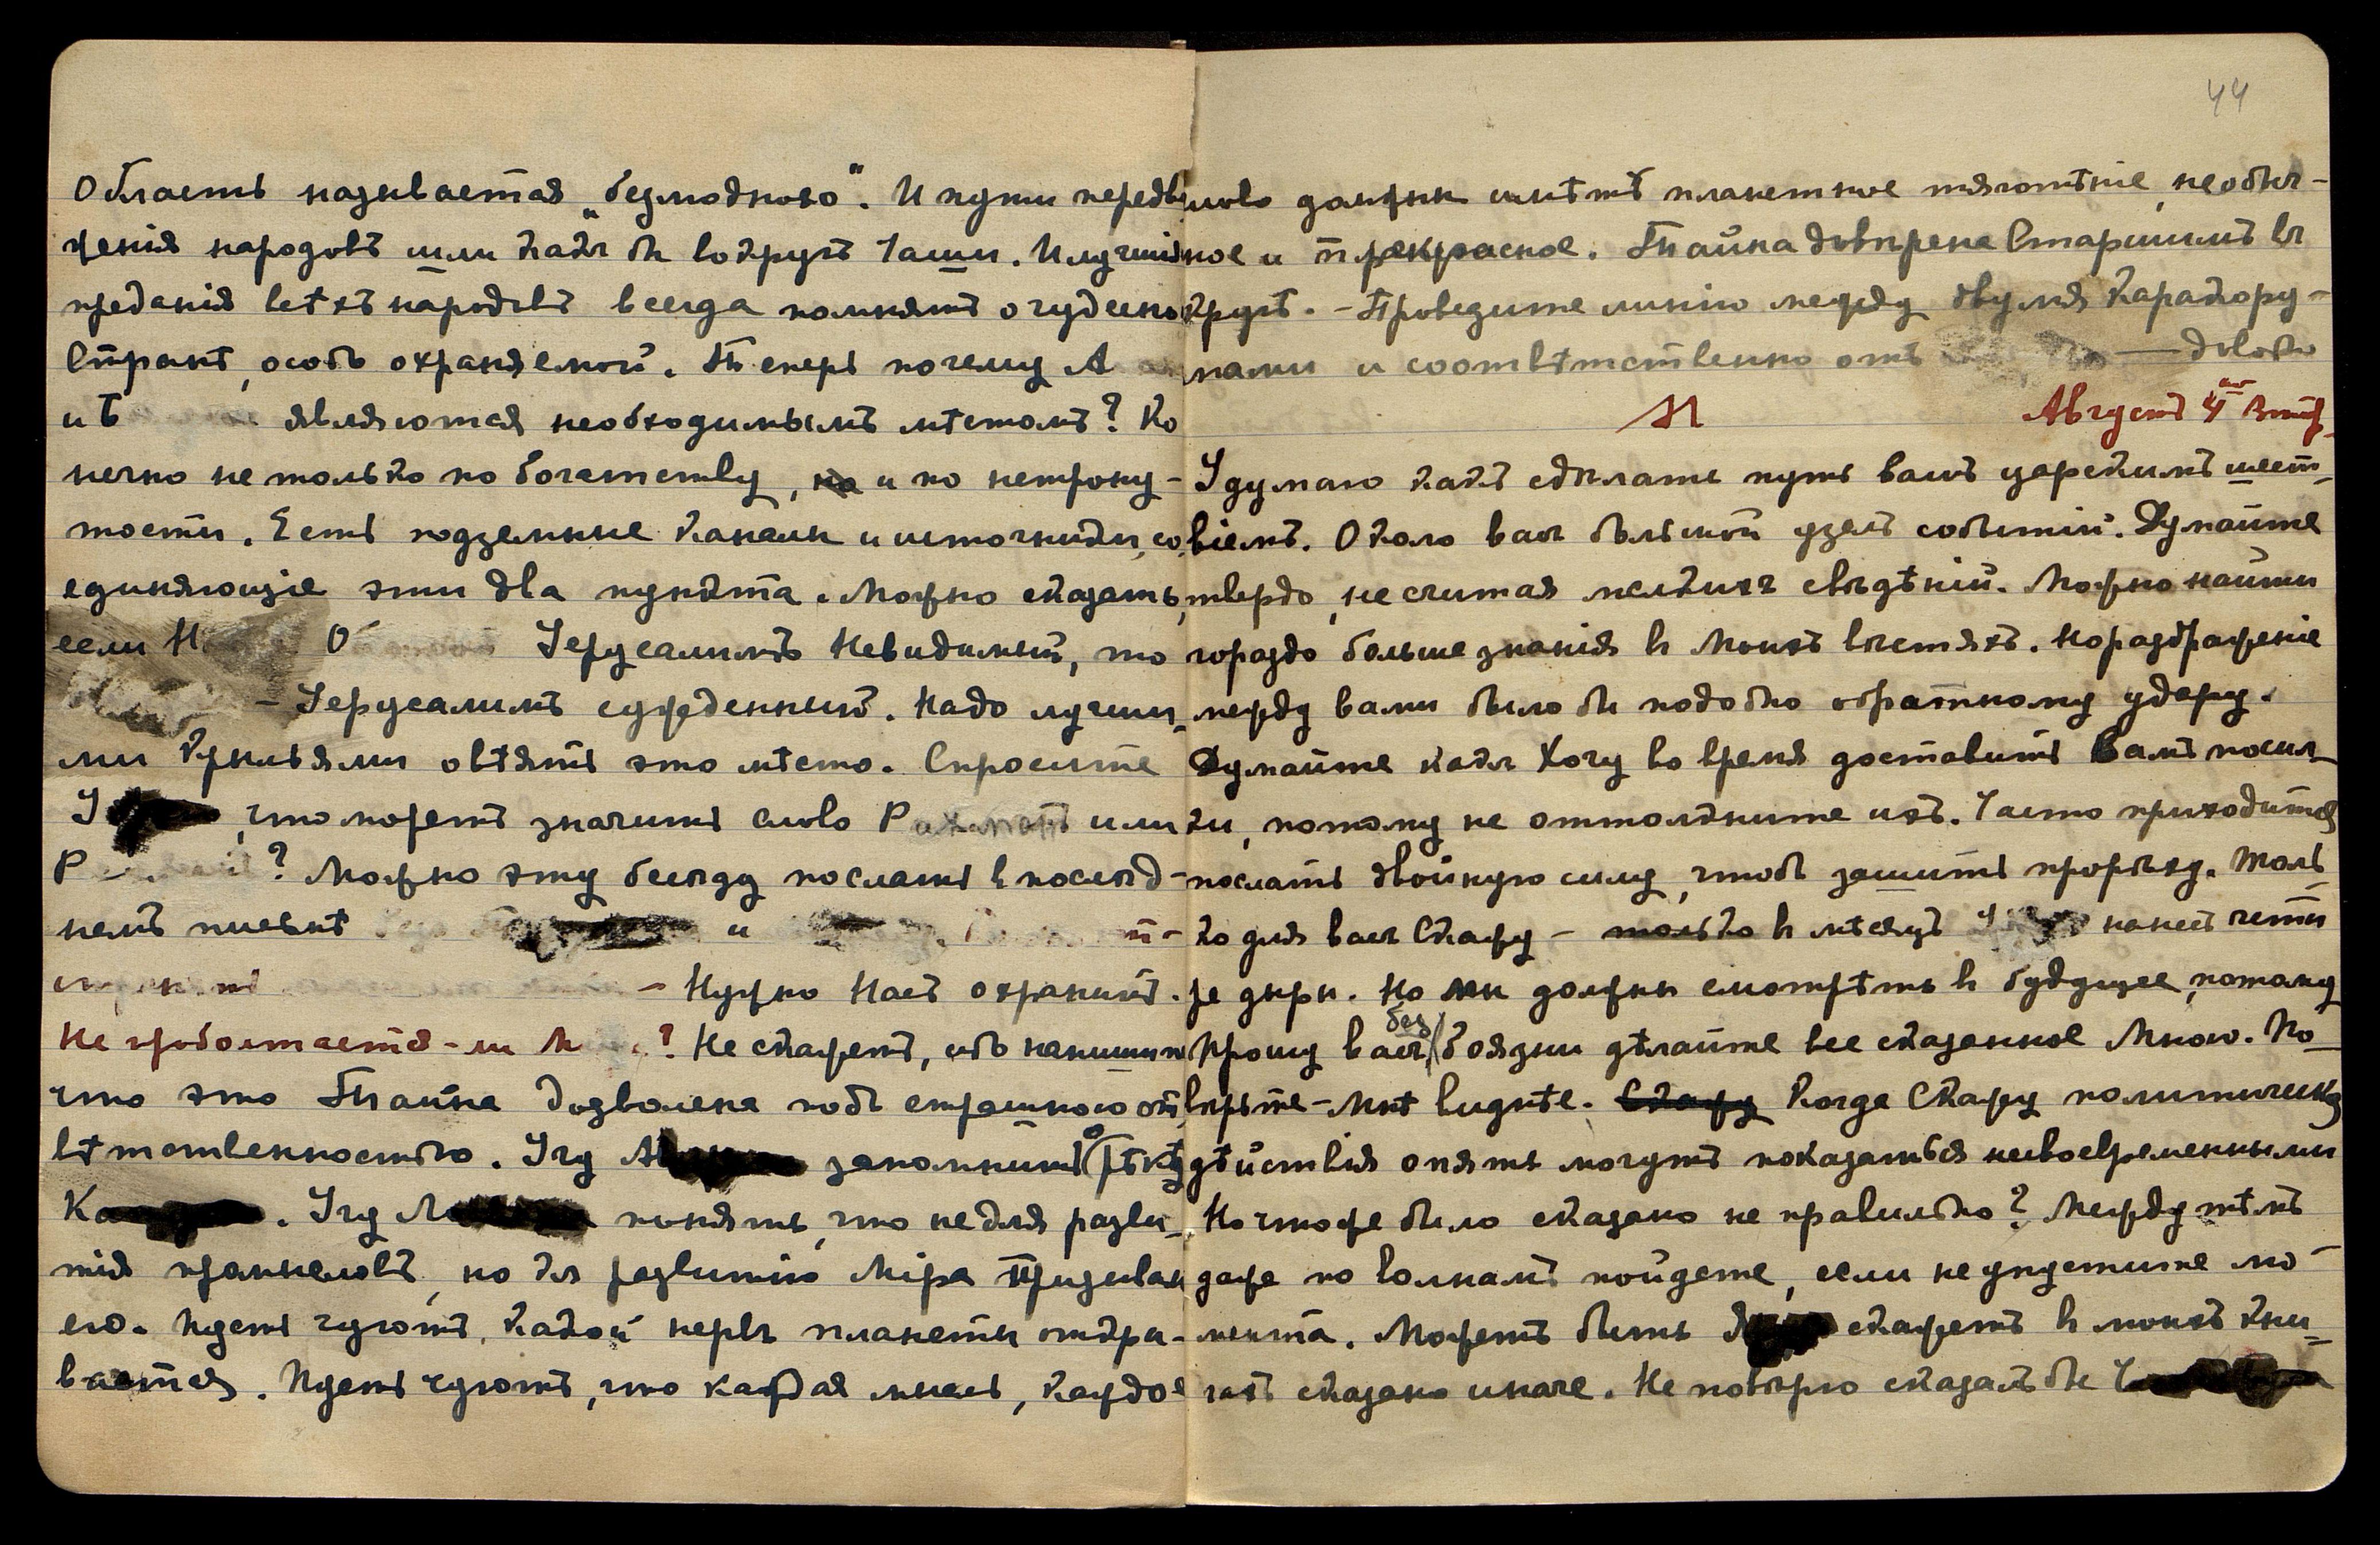 Область называется „безмолвно“. И пути передви
женія народовъ шли какъ бы вокругъ Чаши. И лучшія
преданія всѣхъ народовъ всегда помнятъ о чудесной
Странѣ, особо охраняемой. Теперь почему А
и Б являются необходимымъ мѣстомъ? Ко
нечно не только по богатству, но и по нетрону-
тости. Есть подземные каналы и источники, со
единяющіе эти два пункта. Можно сказать,
если Н О Іерусалимъ Невидимый, то
– Іерусалимъ сужденный. Надо лучши-
ми крыльями овѣять это мѣсто. Спросите
, что можетъ значить слово или
? Можно эту бесѣду послать въ послѣд-
немъ письмѣ и
– Нужно Насъ охранить.
Не проболтается-ли М ? Не скажетъ, ибо напишите
что это Тайна дозволена подъ страшною от
вѣтственностью. Учу запомнить рѣку
. Учу понять, что не для разви-
тія промысловъ, но для развитія Міра призываю
его. Пусть чуютъ, какой нервъ планеты откры-
вается. Пусть чуютъ, что каждая мысль, каждое
44
слово должны имѣть планетное тяготѣніе, необыч-
ное и прекрасное. Тайна довѣрена Старшимъ въ
кругѣ. – Проведите линію между двумя Каракору-
мами и соотвѣтственно отъ — довольно
М Август 4 Втор.
Я думаю какъ сдѣлать путь вашъ царскимъ шест-
віемъ. Около васъ большой узелъ событій. Думайте
твердо, не считая мелкихъ свѣдѣній. Можно найти
гораздо больше знанія в Моихъ вѣстяхъ. Но раздраженіе
между вами было бы подобно обратному удару.
Думайте какъ Хочу во время доставить Вамъ посыл-
ки, потому не оттолкните ихъ. Часто приходится
послать двойную силу, чтобъ зашить прорѣху. Толь
ко для васъ Скажу – только в мѣсяцъ нанесъ четы
ре дыры. Но мы должны смотрѣть в будущее, потому
прошу васъ, без боязни дѣлайте все сказанное Мною. По-
вѣрьте – Мнѣ виднѣе. Скажу Когда Скажу политическія
дѣйствія опять могутъ показаться несвоевременными
Но что же было сказано не правильно? Между тѣмъ
даже по волнамъ пойдете, если не упустите мо-
мента. Можетъ быть скажетъ в моихъ кни-
гахъ сказано иначе. Не повѣрю сказалъ бы